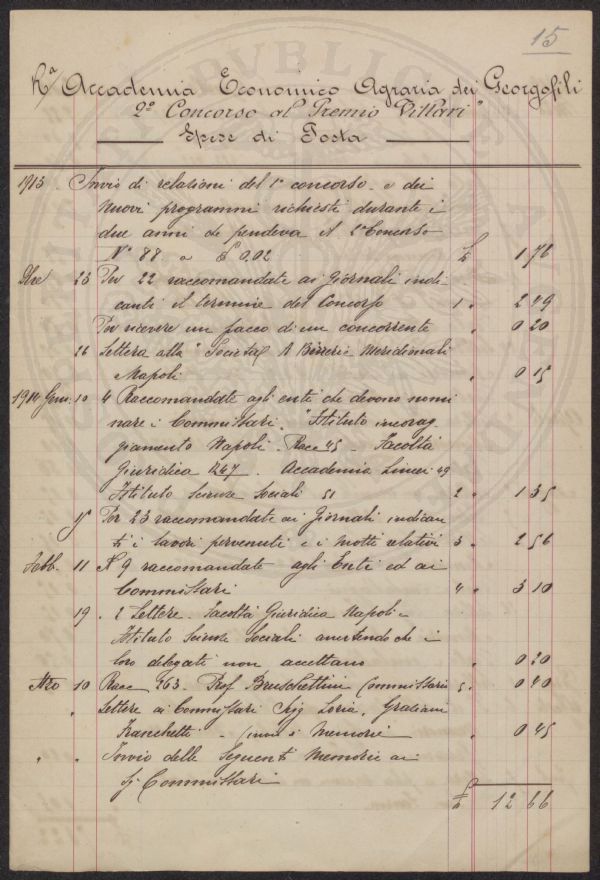 15
Rª Accademia Economico Agraria dei Georgofili
2º Concorso al Premio Villari"
Spese di Posta
1913. Invio di relazioni del 1º concorso e dei
nuovi programmi richiesti durante i
due anni di pendeva il 2º Concorso
Nº 88 a £ 0,02 £ 1 76
Dbre 23 Per 22 raccomandate ai giornali indi
canti il termine del Concorso 1 " 2 49
Per ricevere un pacco di un concorrente " 0 20
26 Lettera alla "Società Meridionali
Napoli " 0 15
1914 Genn. 10 4 Raccomandate agli enti che devono nomi
nare i Commissari. "Istituto incorag-
giamento Napoli. Racc 45 - Facoltà
Giuridica 247. Accademia Lincei 49
Istituto Scienze Sociali 51 2 " 1 35
Per 23 raccomandate ai Giornali indican
ti i lavori pervenuti e i motti relativi 3 " 2 56
Febb. 11 Nº 9 raccomandate agli Enti ed ai
Commissari 4 " 3 10
19 . 2 Lettere. Facoltà Giuridica Napoli e
Istituto Scienze Sociali avvertendo che i
loro delegati non accettano " 0 20
Mzo 10 Racc 263. Prof Bruschettini Commissario 5 " 0 40
" Lettere ai Commissari Sigg Loria, Graziani
Franchetti - (invio di Memorie " 0 45
" " Invio delle Seguenti Memorie ai
Sj Commissari
£ 12 66